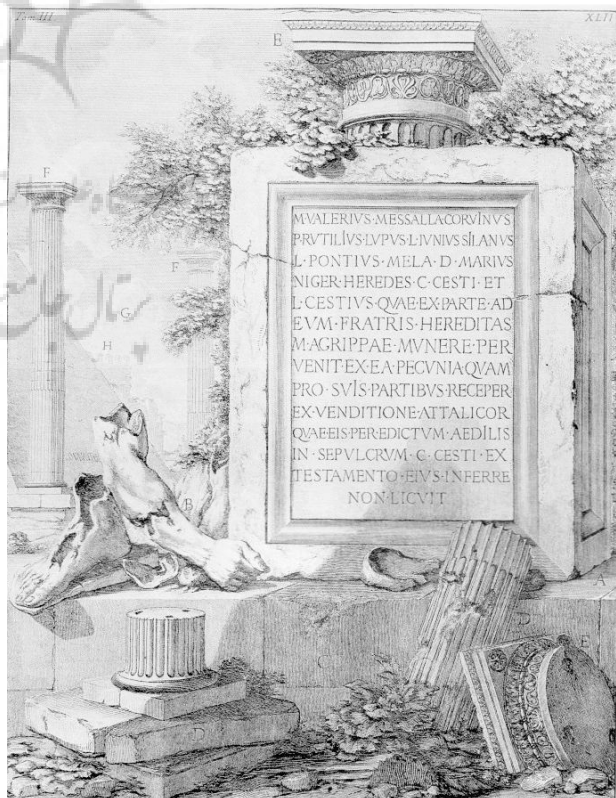 Tom. III
XLII
E
M·VALERIVS·MESSALLA·CORVINVS
P·RVTILIVS·LVPVS·L·IVNIVS·SILANVS
L·PONTIVS·MELA·D·MARIVS
NIGER·HEREDES·C·CESTI·ET
L·CESTIVS·QVAE·EX·PARTE·AD
EVM·FRATRIS·HEREDITAS
M·AGRIPPAE·MVNERE·PER
VENIT·EX·EA·PECVNIA·QVAM
PRO·SVIS·PARTIBVS·RECEPER
EX·VENDITIONE·ATTALICOR
QVAE·EIS·PER·EDICTVM·AEDILIS
IN·SEPVLCRVM·C·CESTI·EX
TESTAMENTO·EIVS·INFERRE
NON·LICVIT
F
F
G
H
M
B
A
C
D
E
D